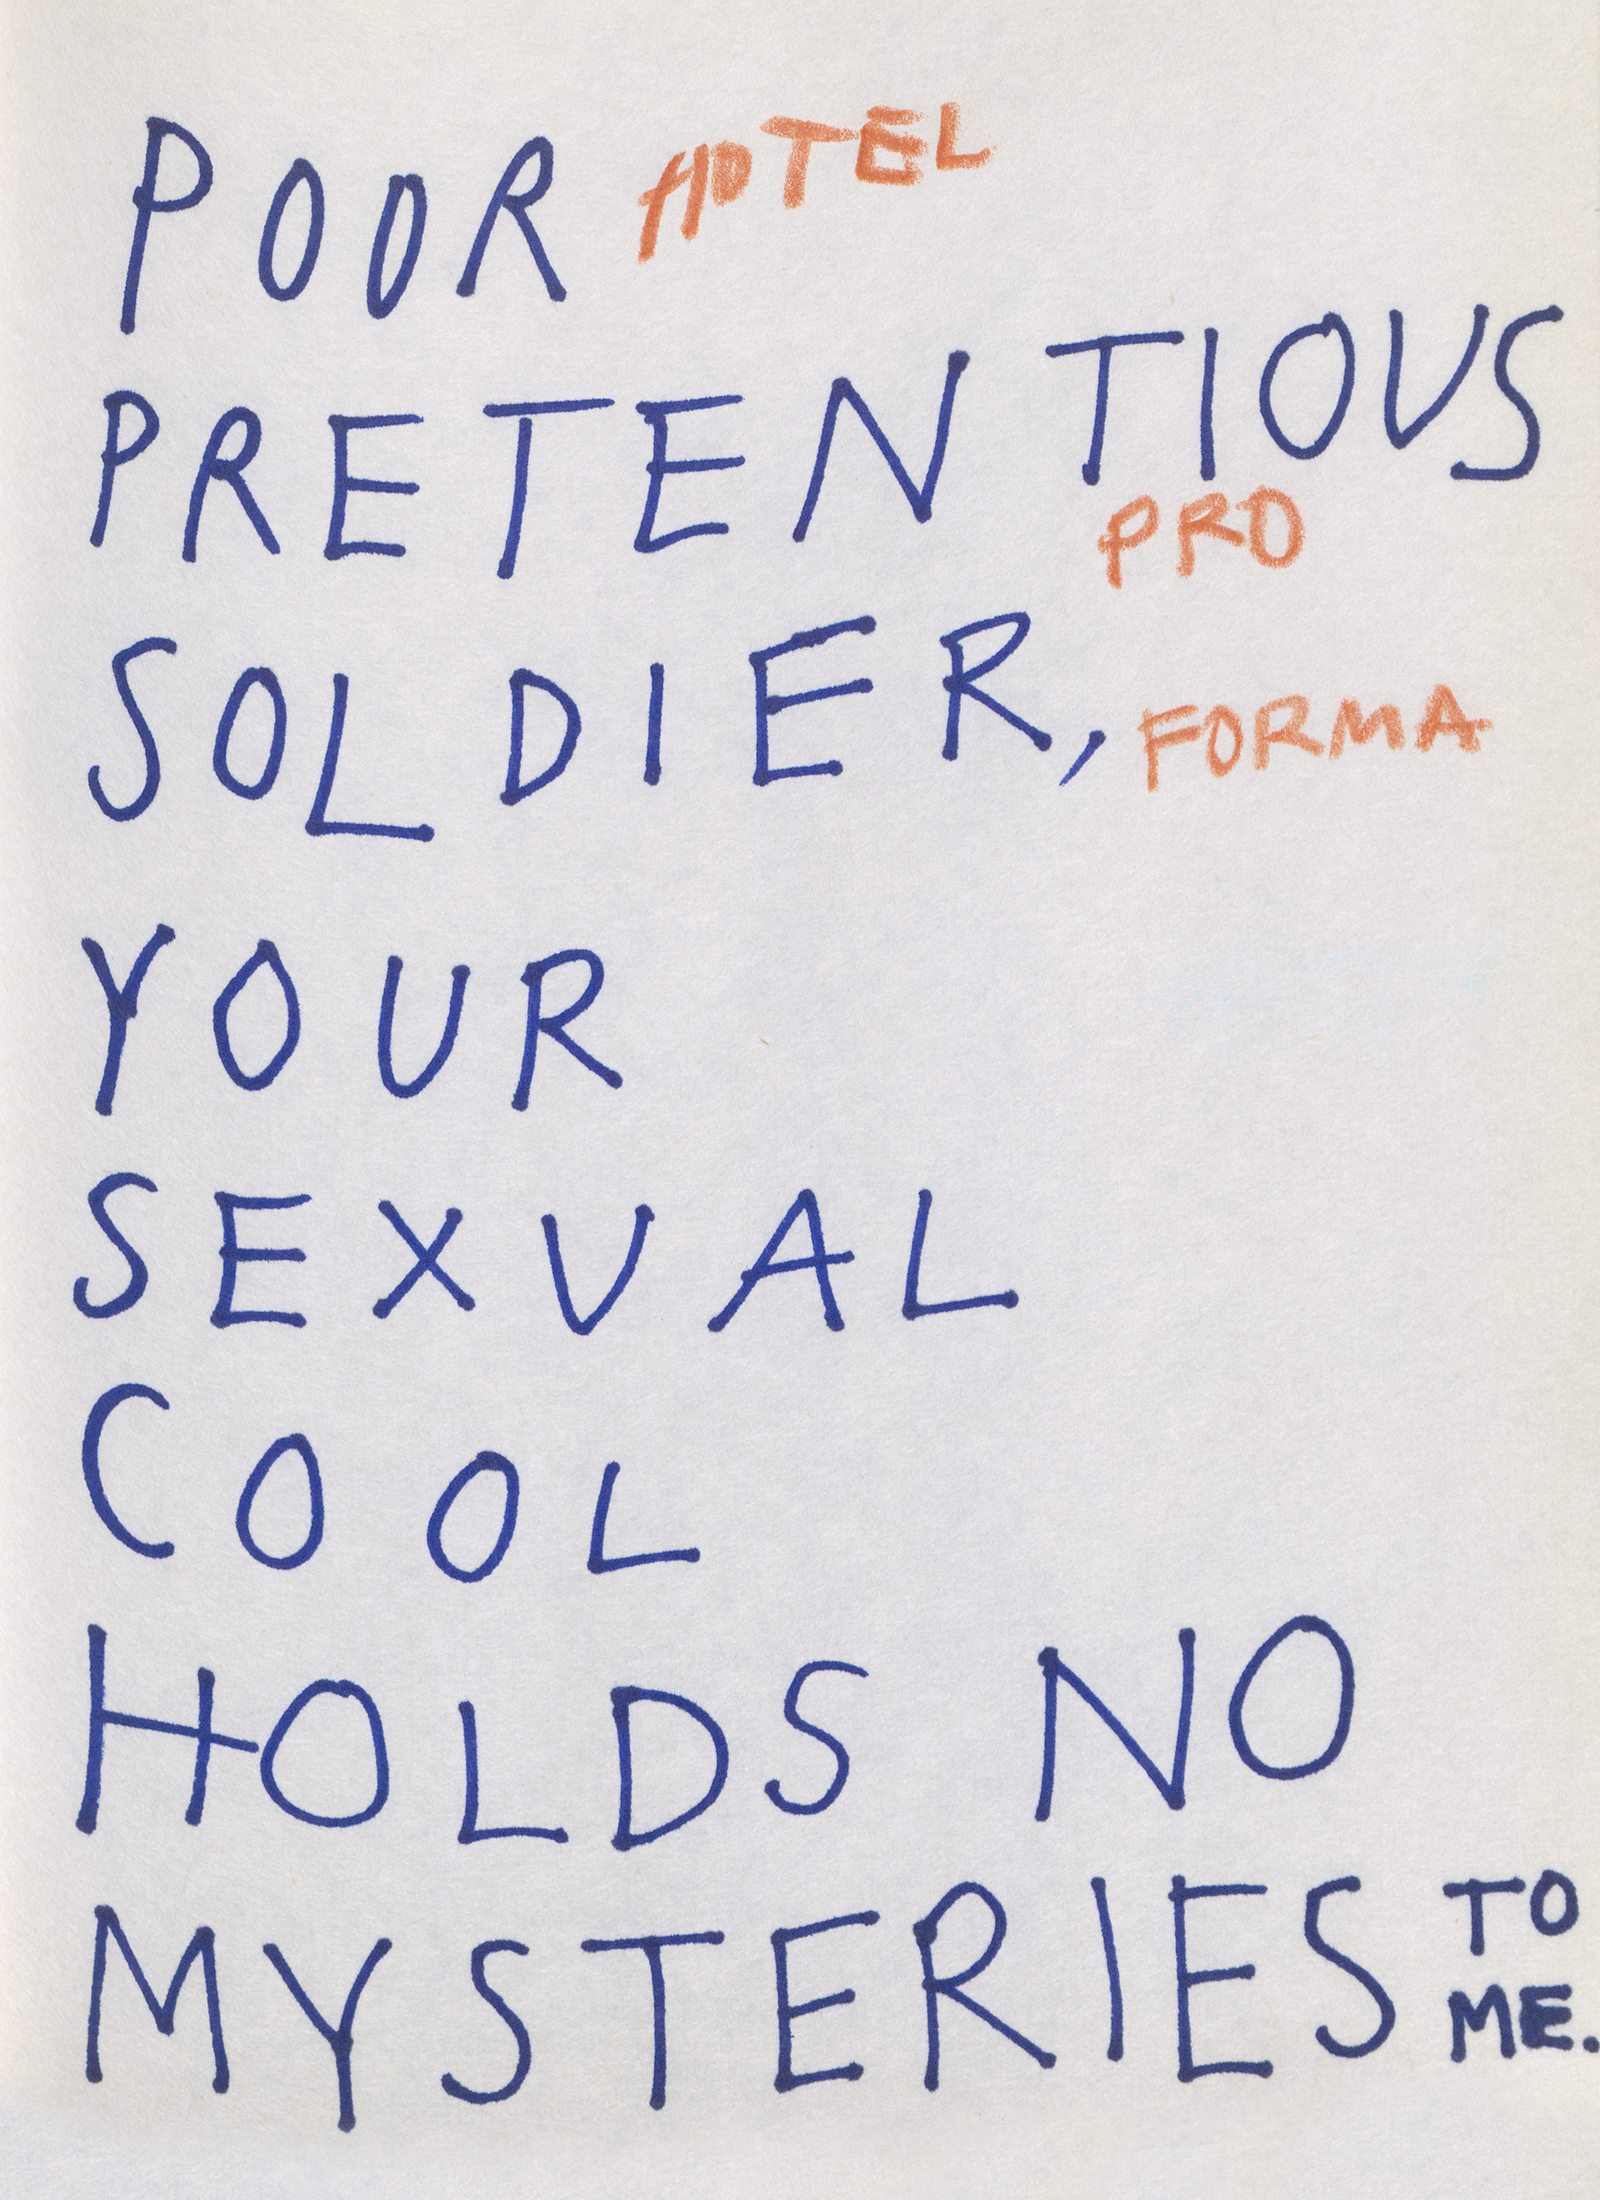 POOR HOTEL
PRETENTIOUS
PRO
SOLDIER, FORMA
YOUR
SEXUAL
COOL
HOLDS NO
MYSTERIES TO
ME.